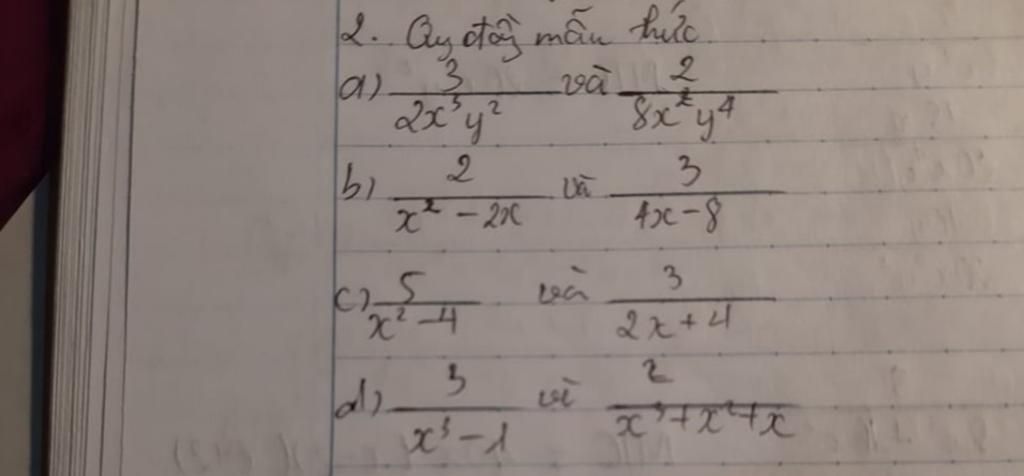 2. Quy đồng mẫu thức
a) 3/(2x³y²) và 2/(8x²y⁴)
b) 2/(x² - 2x) và 3/(4x - 8)
c) 5/(x² - 4) và 3/(2x + 4)
d) 3/(x³ - 1) và 2/(x³ + x² + x)